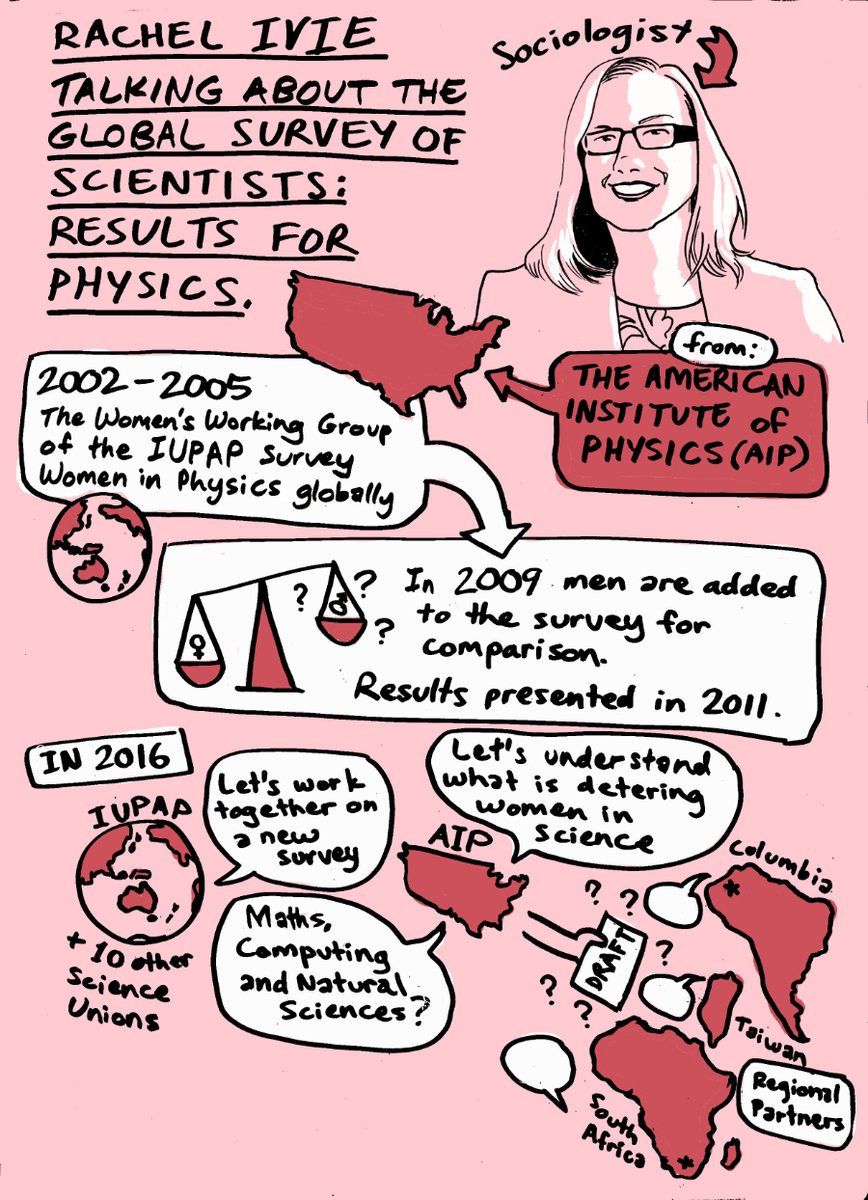 RACHEL IVIE
TALKING ABOUT THE
GLOBAL SURVEY OF
SCIENTISTS:
RESULTS FOR
PHYSICS.
Sociologist
from:
THE AMERICAN
INSTITUTE of
PHYSICS (AIP)
2002-2005
The Women's Working Group
of the IUPAP survey
Women in Physics globally
♀
♂
? ? ?
In 2009 men are added
to the survey for
comparison.
Results presented in 2011.
IN 2016
IUPAP
+ 10 other
Science
Unions
Let's work
together on
a new
survey
AIP
Let's understand
what is detering
women in
science
Maths,
Computing
and Natural
Sciences?
DRAFT
? ? ? ? ?
Columbia
*
Taiwan
South
Africa
*
Regional
Partners